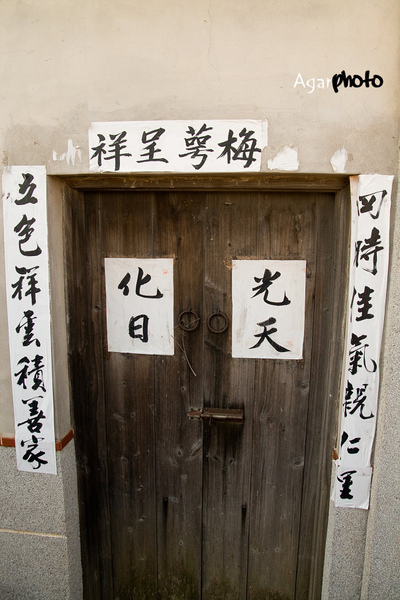 Agarphoto
梅萼呈祥
四時佳氣親仁里
光天
化日
五色祥雲積善家